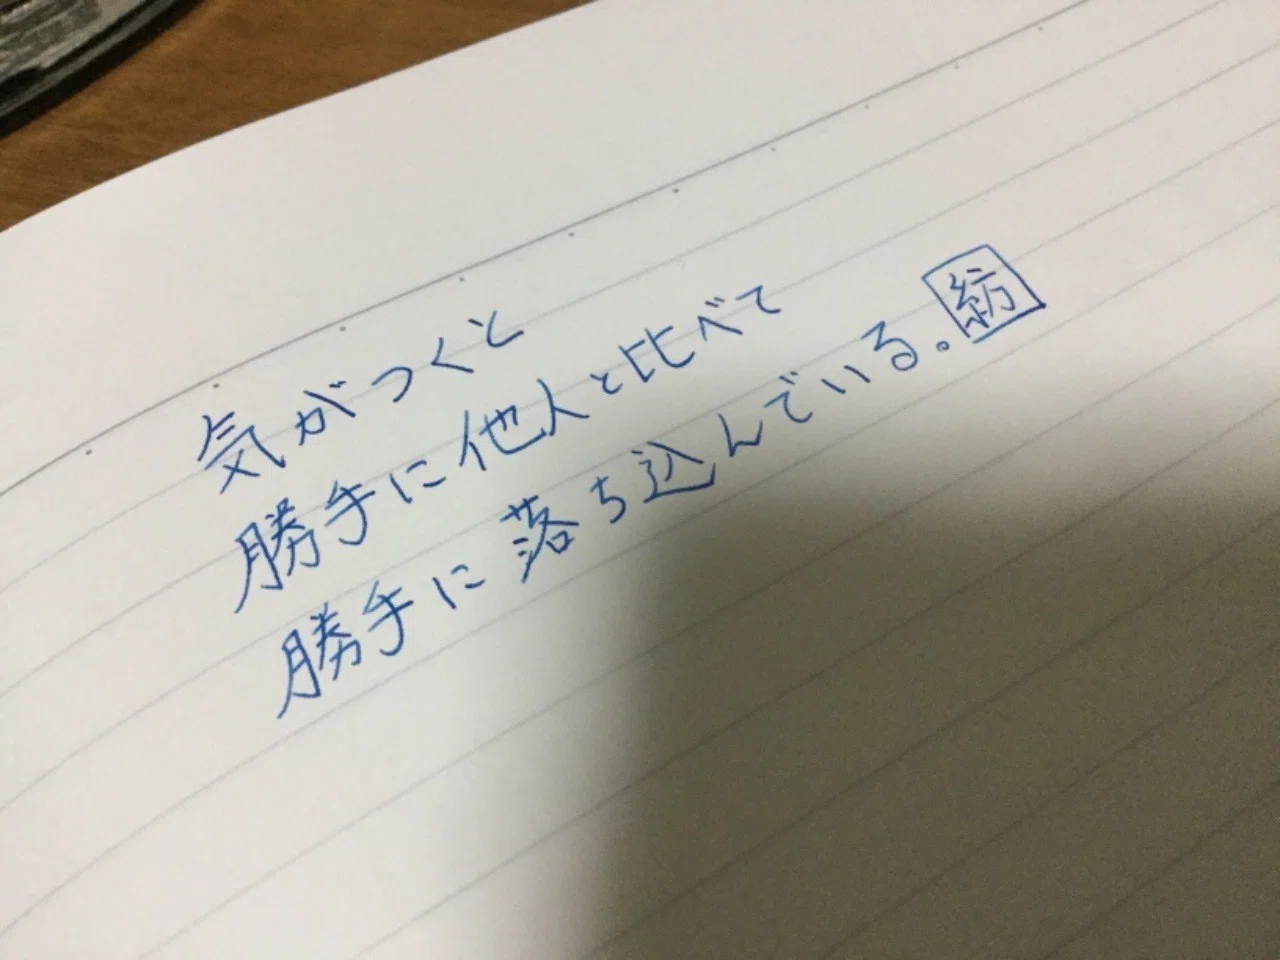 気がつくと
勝手に他人と比べて
勝手に落ち込んでいる。紡